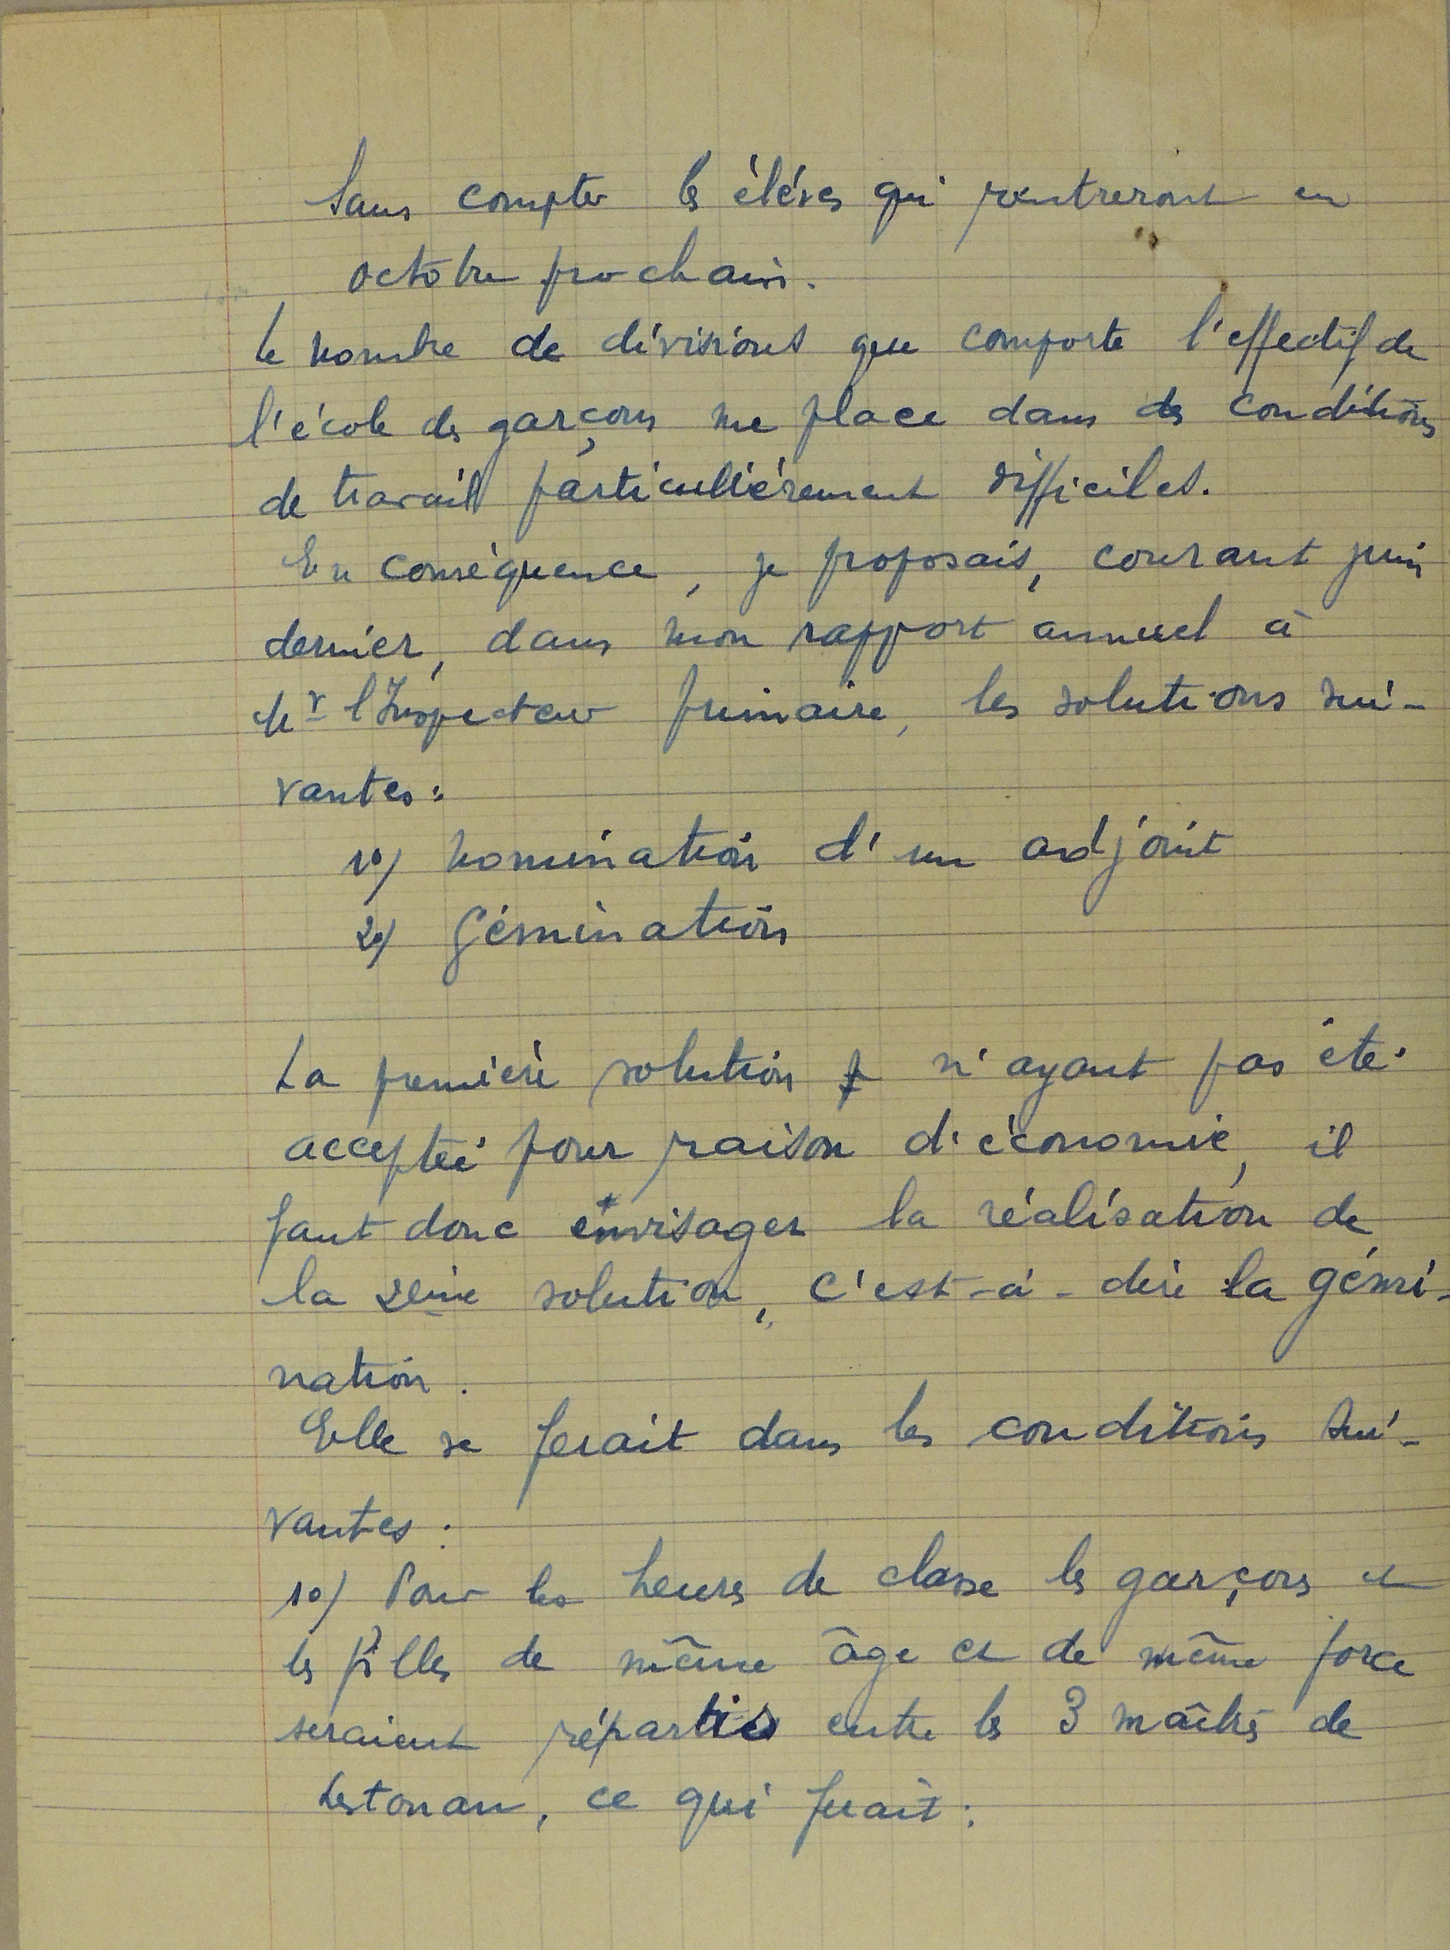 Sans compter les élèves qui rentreront en
octobre prochain.
Le nombre de divisions que comporte l'effectif de
l'école de garçons me place dans des conditions
de travail particulièrement difficiles.
En conséquence, je proposais, courant juin
dernier, dans mon rapport annuel à
Mr l'Inspecteur primaire, les solutions sui-
vantes:
1o/ nomination d'un adjoint
2o/ Gémination
La première solution n'ayant pas été
acceptée pour raison d'économie, il
faut donc envisager la réalisation de
la 2ème solution, c'est-à-dire la gémi-
nation.
Elle se ferait dans les conditions sui-
vantes:
1o/ Pour les heures de classe les garçons et
les filles de même âge et de même force
seraient répartis entre les 3 maîtres de
Lestonan, ce qui ferait: